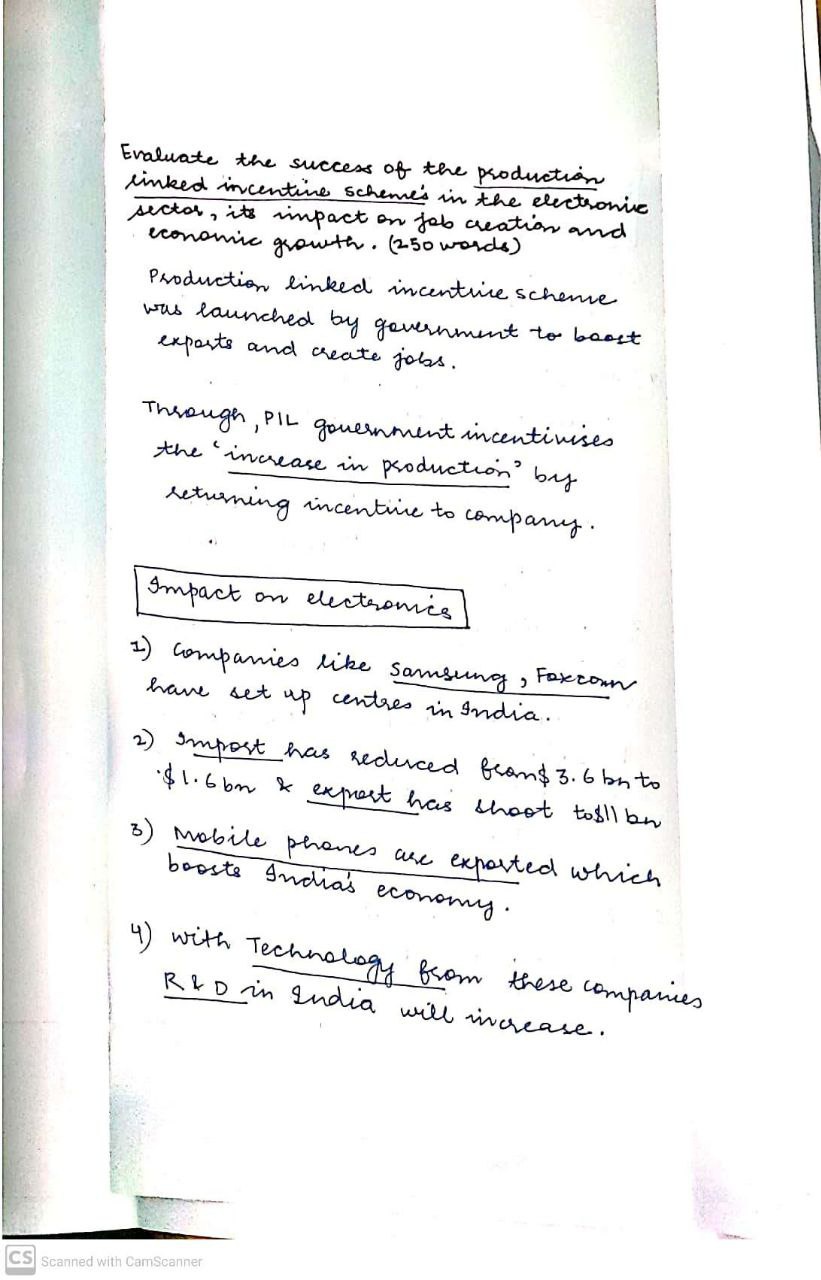 Evaluate the success of the production
linked incentive scheme's in the electronic
sector, its impact on job creation and
economic growth. (250 words)
Production linked incentive scheme
was launched by government to boost
exports and create jobs.
Through, PIL government incentivises
the 'increase in production' by
returning incentive to company.
Impact on electronics
1) Companies like Samsung, Foxconn
have set up centres in India.
2) Import has reduced from $3.6 bn to
$1.6 bn & export has shoot to $11 bn
3) Mobile phones are exported which
boosts India's economy.
4) with Technology from these companies
R & D in India will increase.
CS Scanned with CamScanner